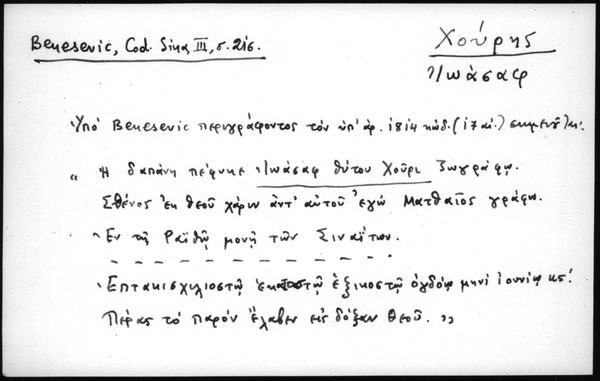 Benesevic, Cod. Sina, III, σ. 216.
Χούρης
Ἰωάσαφ
Ὑπὸ Benesevic περιγράφοντος τὸν ὑπ' ἀρ. 1814 κώδ. (17 αἰ.) σημειοῦται:
“ Ἡ δαπάνη πέφυκε Ἰωάσαφ θύτου Χοῦρι Ζωγράφω.
Σθένος ἐκ θεοῦ χάριν ἀντ' αὐτοῦ ἐγὼ Ματθαῖος γράφω.
Ἐν τῇ Ραϊθῷ μονῇ τῶν Σιναϊτων.
Ἑπτακισχιλιοστῷ ἑκατοστῷ ἑξικοστῷ ὀγδόῳ μηνὶ ἰουνίῳ κς'
Πέρας τὸ παρὸν ἔλαβεν εἰς δόξαν θεοῦ. ”